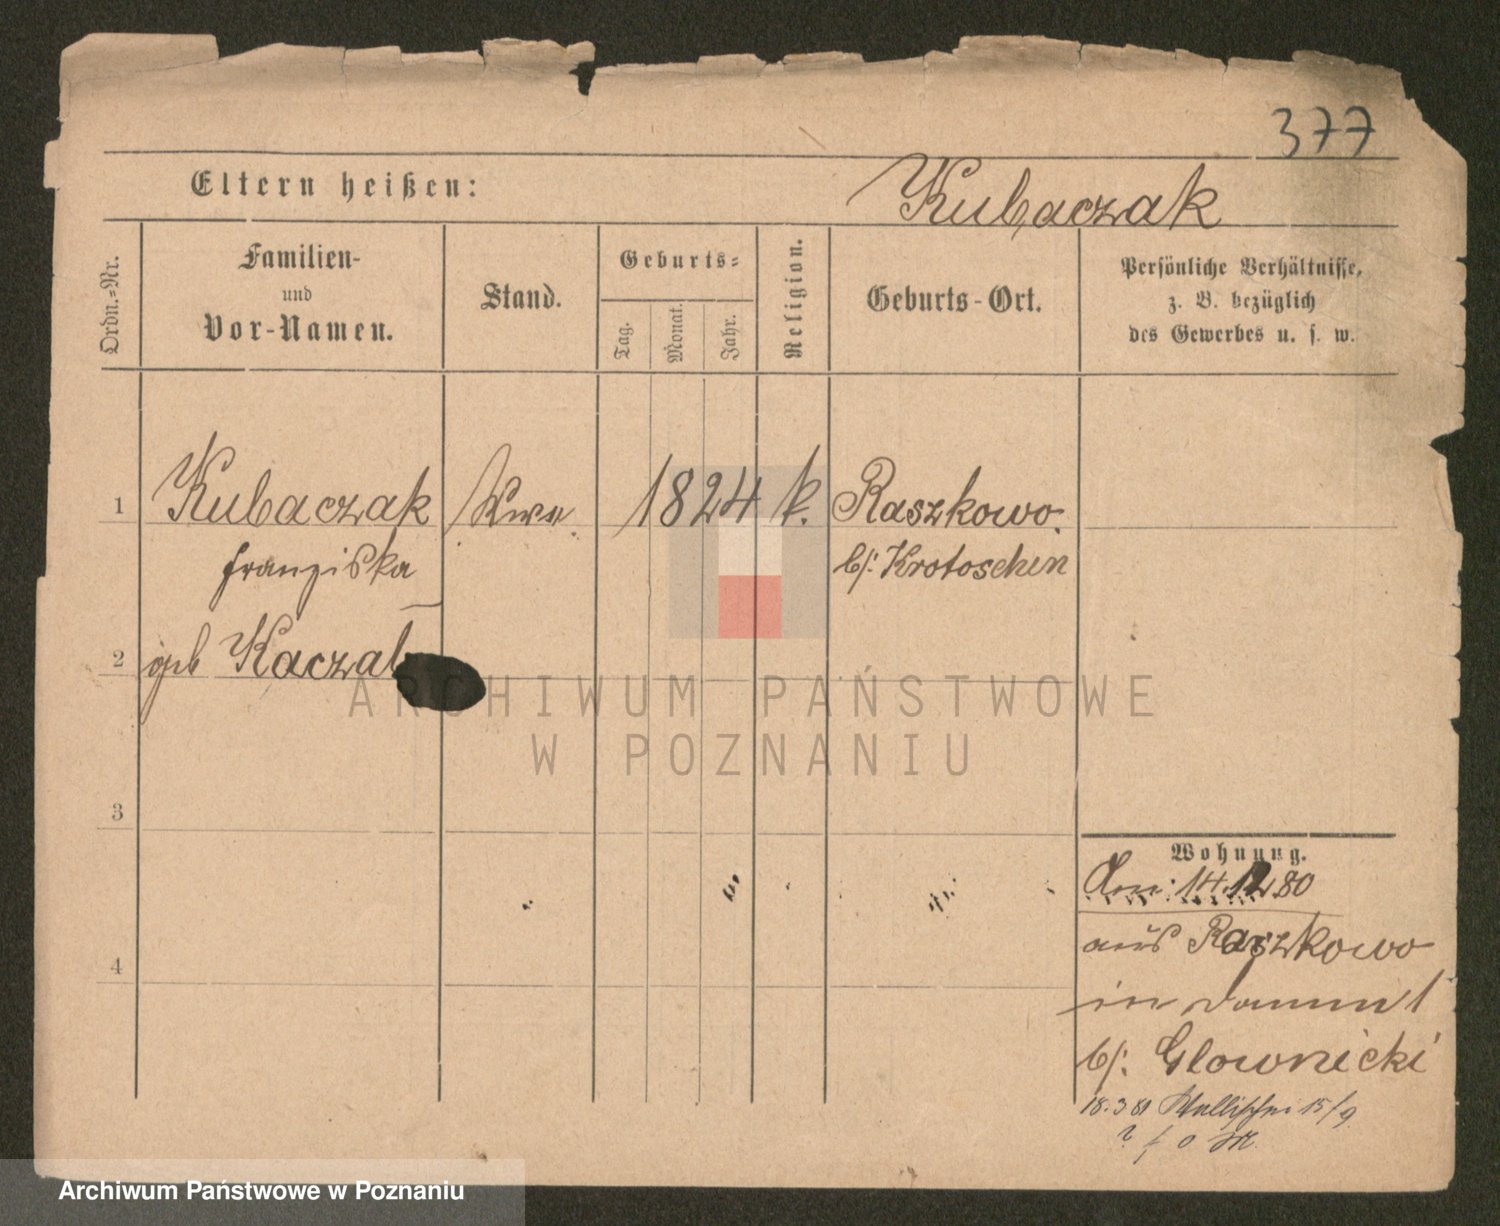 377
Eltern heißen:
Kubaczak
Ordn.-Nr.
Familien-
und
Vor-Namen.
Stand.
Geburts-
Tag.
Monat.
Jahr.
Religion.
Geburts-Ort.
Persönliche Verhältnisse,
z. B. bezüglich
des Gewerbes u. s. w.
1 Kubaczak Wwe. 1824 k. Raszkowo.
Franziska b/: Krotoschin
2 geb Kaczal
ARCHIWUM PAŃSTWOWE
W POZNANIU
3
Wohnung.
14.12.80
aus Raszkowo
4
in Damm 1
b/: Glownicki
18.3 81 Wallischei 15/9.
Archiwum Państwowe w Poznaniu